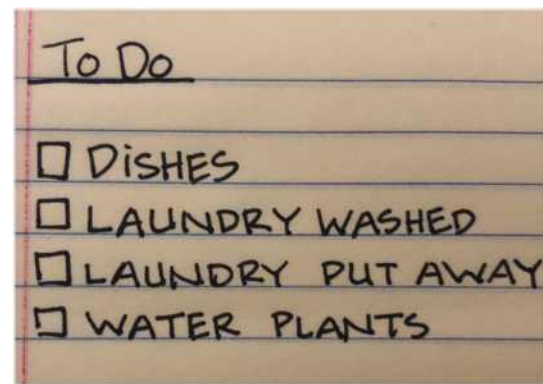 To Do
DiSHES
LAUNDRY WASHED
LAUNDRY PUT AWAY
WATER PLANTS